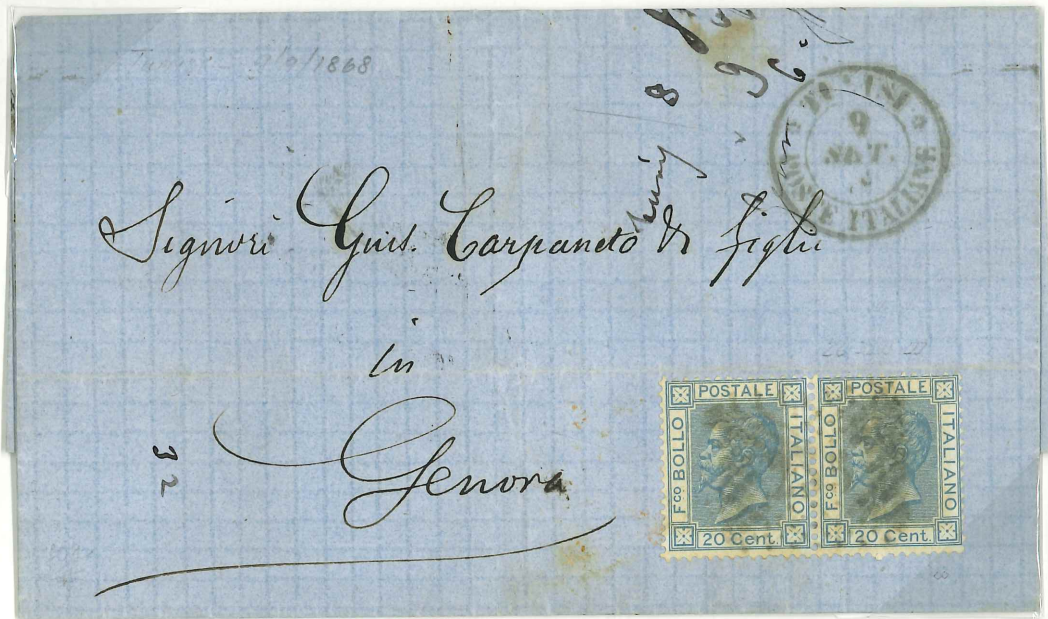 9/9/1868
TUNISI
POSTE ITALIANE
9
SET.
8
9
6
Signori Gius. Carpaneto & figli
in
Genova
32
POSTALE
Fco BOLLO
ITALIANO
20 Cent.
POSTALE
Fco BOLLO
ITALIANO
20 Cent.